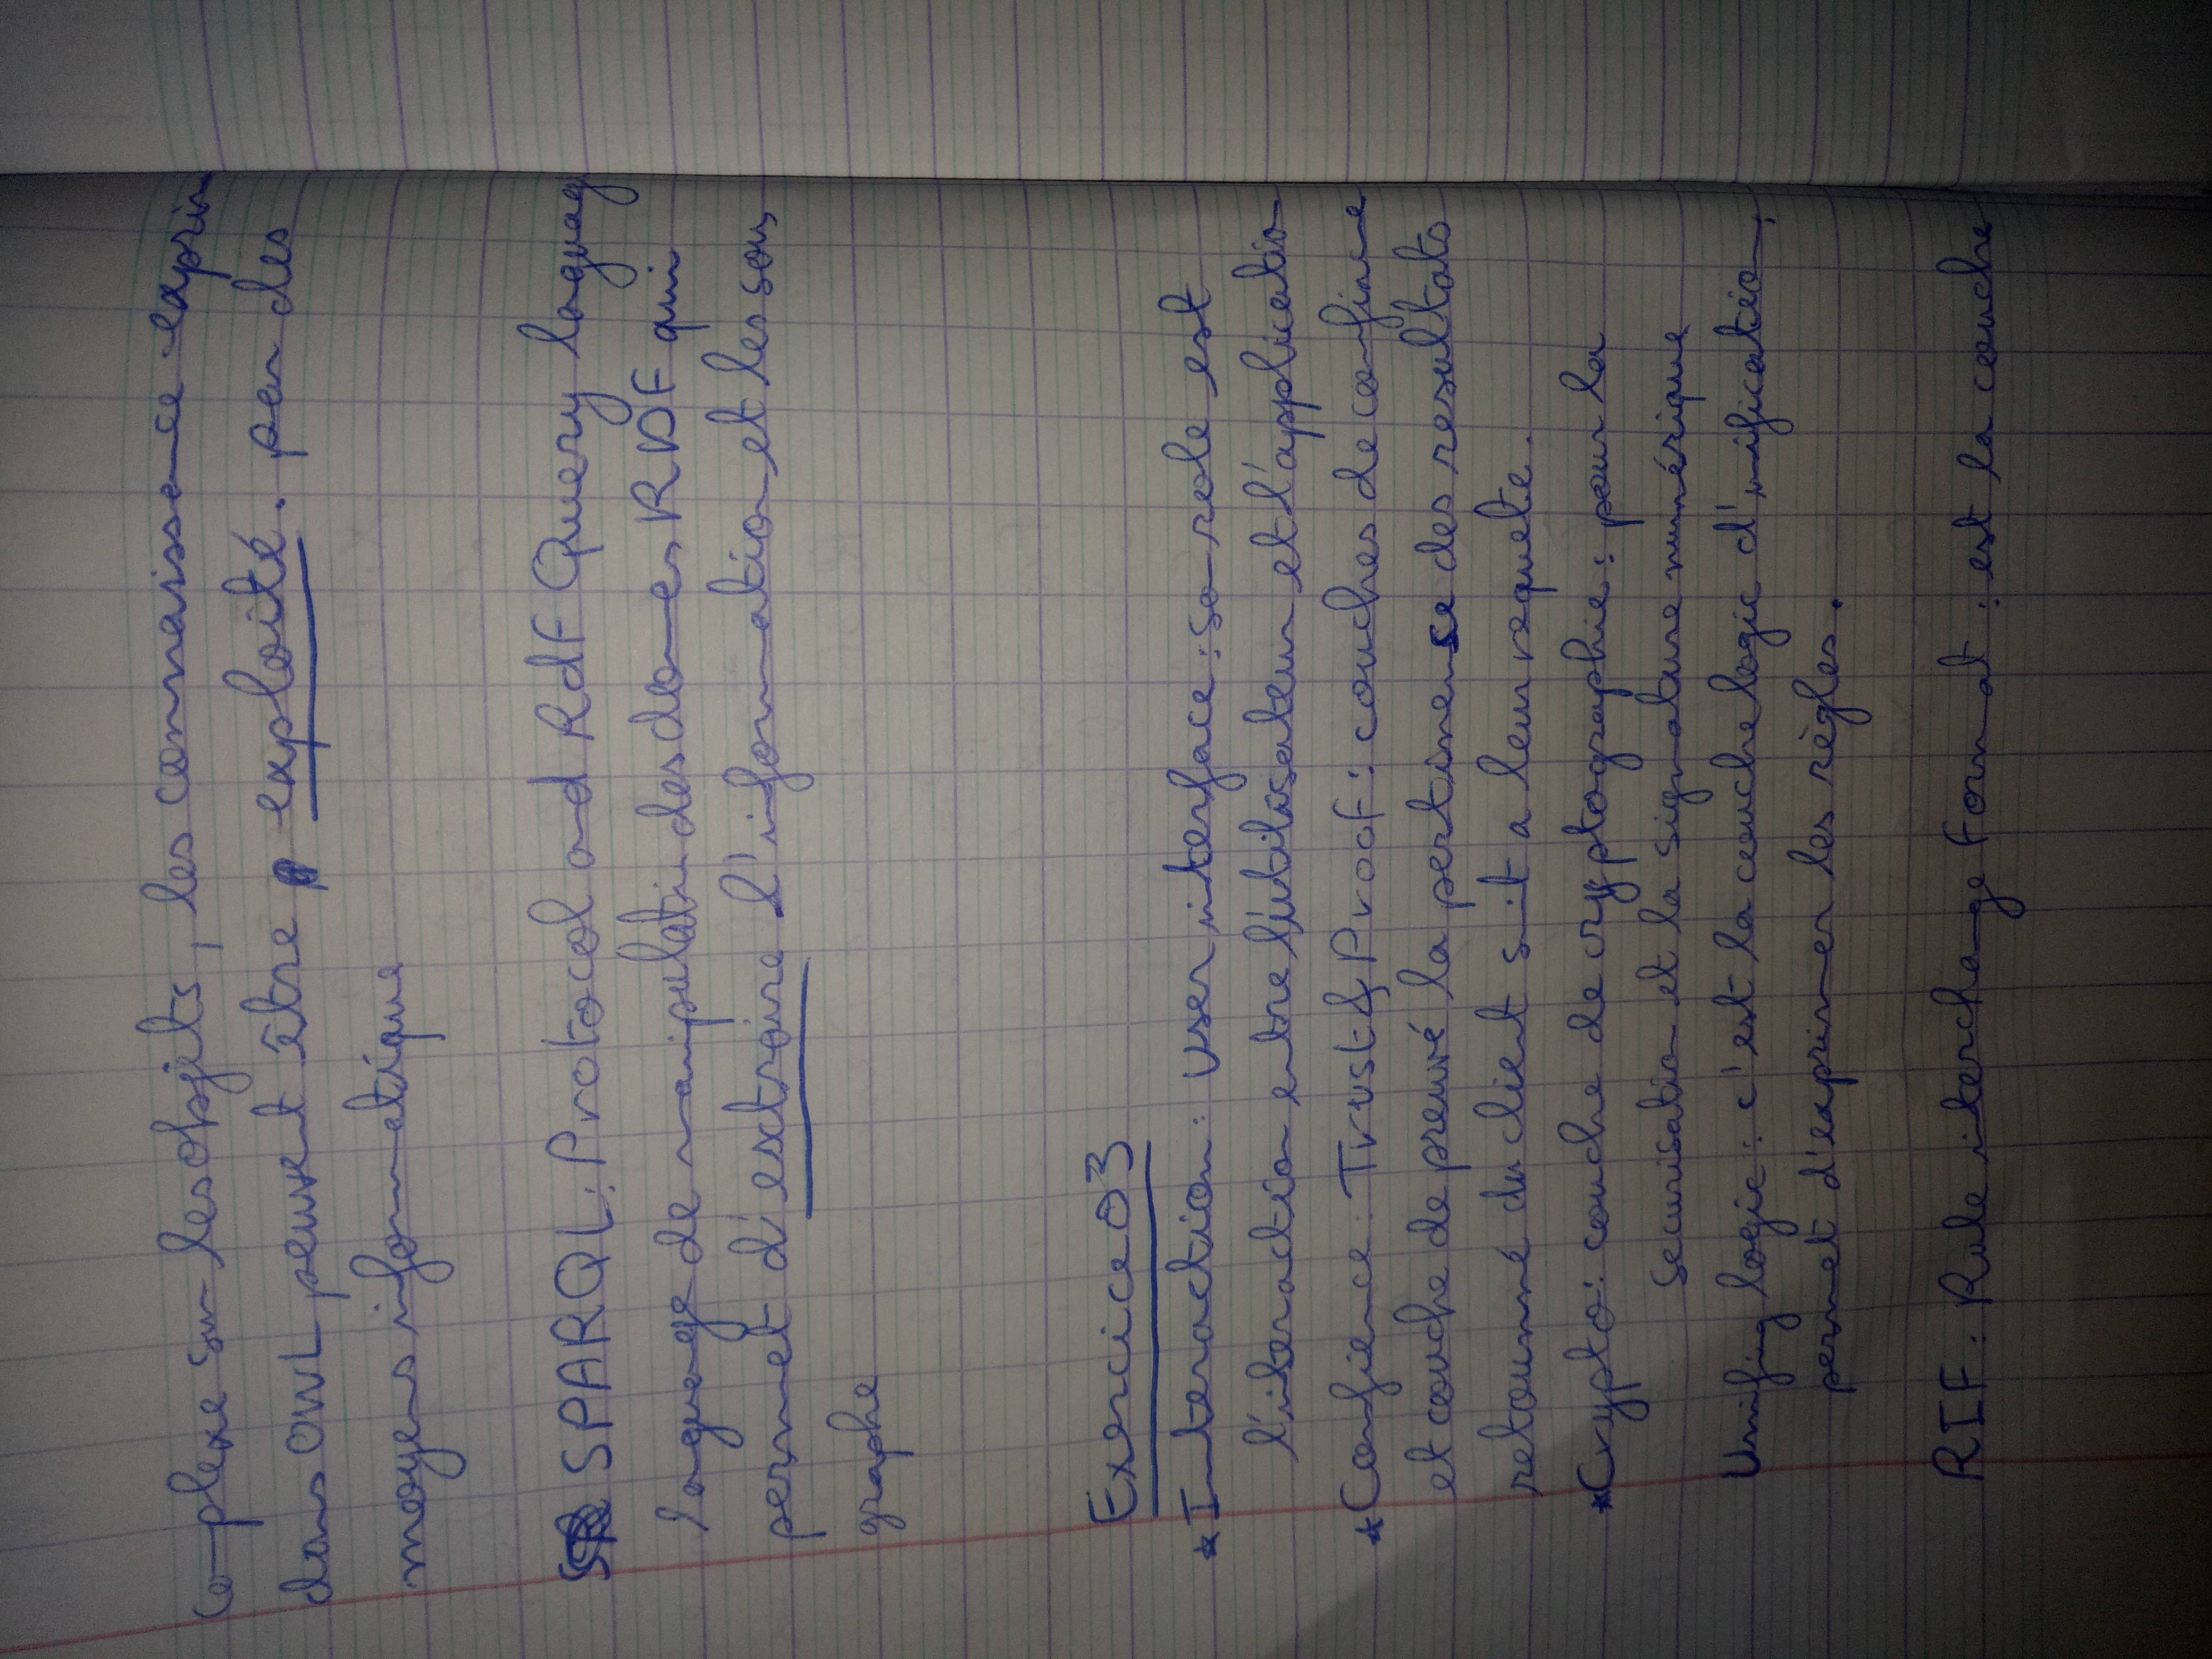 complexe sur les objets, les connaissance exprim
dans OWL peuvent être exploité. par des
moyens informatique
SPARQL: Protocol and RdF Query laguag
laguage de manipulation des donnes RDF qui
permet d'extraire l'information et les sous
graphe
Exercice 03
* Interaction: User interface: son role est
l'interaction entre l'utilisateur et l'application
* Confience: Trust & Proof: couches de confince
et couche de preuvé la pertinense des resultats
retourné du client suit a leur requete.
* Crypto: couche de cryptographie: pour la
securisation et la signature numérique
Unifing logic: c'est la couche logic d'unification,
permet d'exprimer les règles.
RIF: Rule interchange Format: est la couche